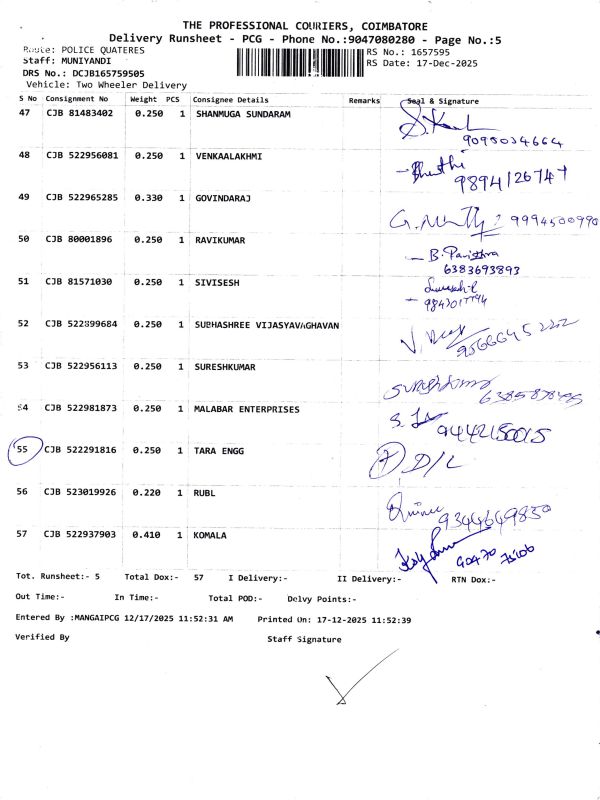 THE PROFESSIONAL COURIERS, COIMBATORE
Delivery Runsheet - PCG - Phone No.:9047080280 - Page No.:5
Route: POLICE QUATERES RS No.: 1657595
Staff: MUNIYANDI RS Date: 17-Dec-2025
DRS No.: DCJB165759505
Vehicle: Two Wheeler Delivery
S No Consignment No Weight PCS Consignee Details Remarks Seal & Signature
47 CJB 81483402 0.250 1 SHANMUGA SUNDARAM
9095034664
48 CJB 522956081 0.250 1 VENKAALAKHMI
49 CJB 522965285 0.330 1 GOVINDARAJ 9994500990
50 CJB 80001896 0.250 1 RAVIKUMAR B. Pavithra
6383693893
51 CJB 81571030 0.250 1 SIVISESH
52 CJB 522899684 0.250 1 SUBHASHREE VIJASYAVAGHAVAN
53 CJB 522956113 0.250 1 SURESHKUMAR
54 CJB 522981873 0.250 1 MALABAR ENTERPRISES
55 CJB 522291816 0.250 1 TARA ENGG D/L
56 CJB 523019926 0.220 1 RUBL
9344649850
57 CJB 522937903 0.410 1 KOMALA
Tot. Runsheet:- 5 Total Dox:- 57 I Delivery:- II Delivery:- RTN Dox:-
Out Time:- In Time:- Total POD:- Delvy Points:-
Entered By :MANGAIPCG 12/17/2025 11:52:31 AM Printed On: 17-12-2025 11:52:39
Verified By Staff Signature